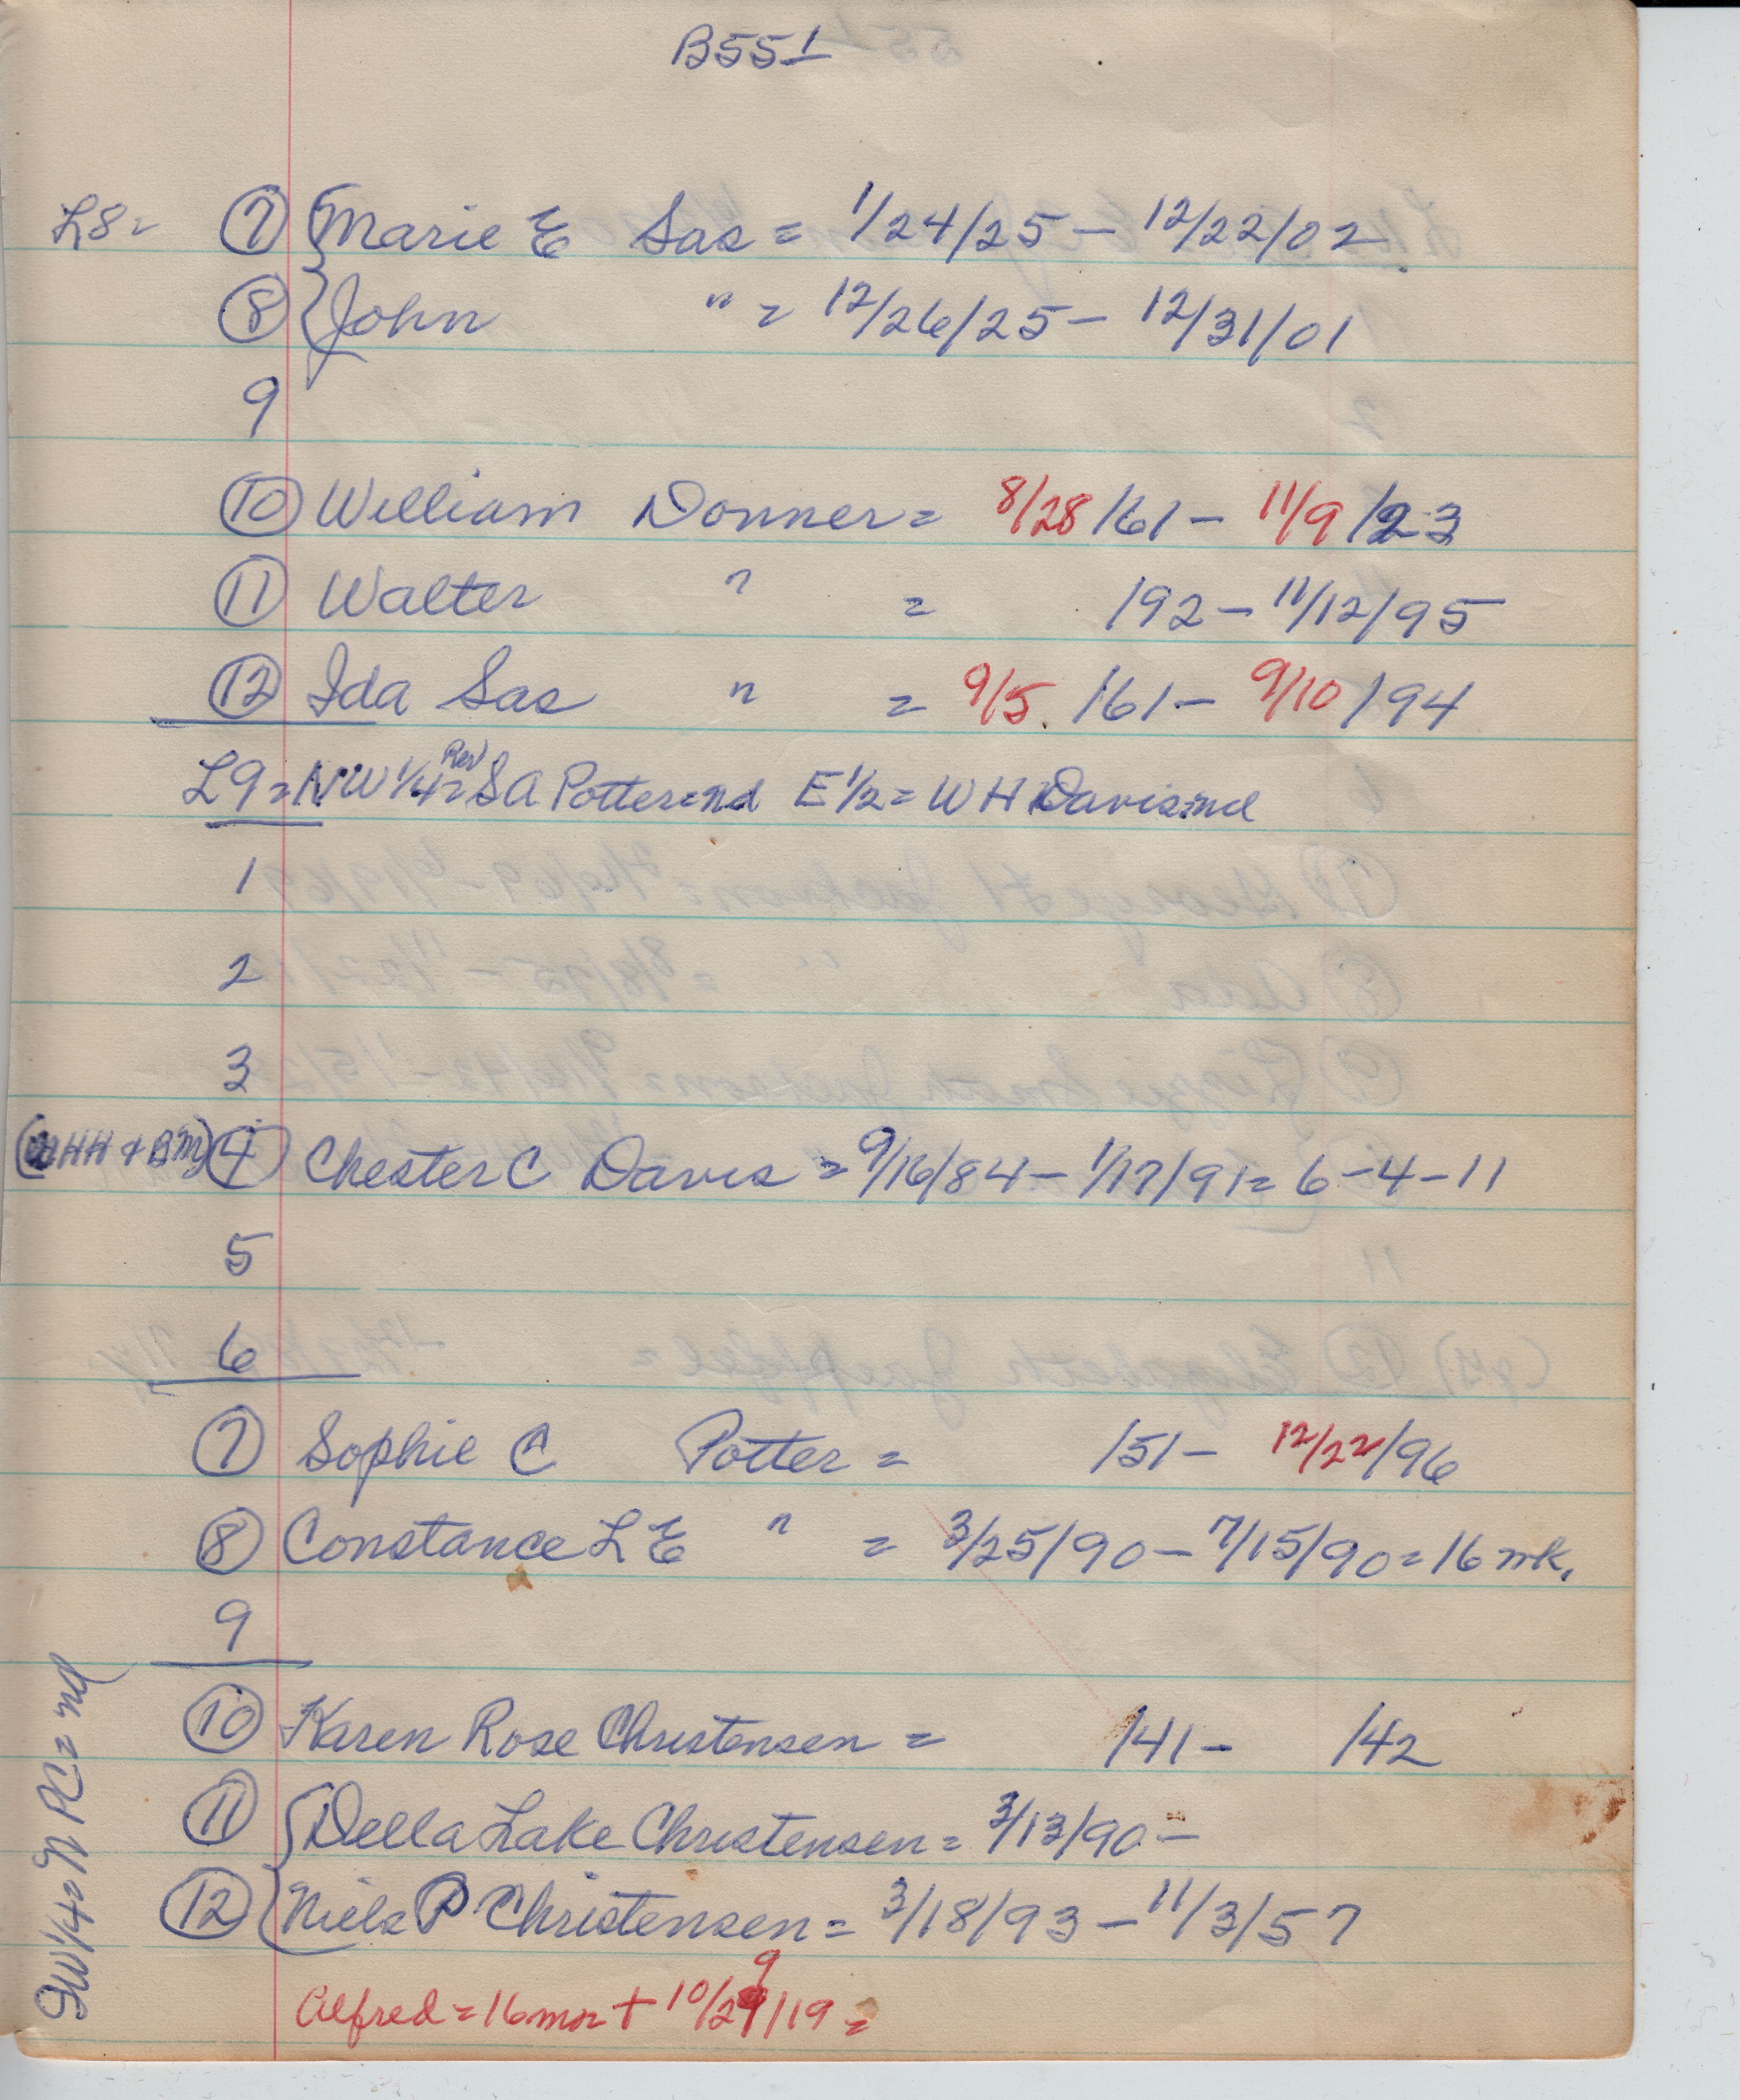 B551
L8= 7 Marie E Sas = 1/24/25 - 12/22/02
8 John " = 12/26/25 - 12/31/01
9
10 William Donner = 8/28/61 - 11/9/23
11 Walter " = /92 - 11/12/95
12 Ida Sas " = 9/5/61 - 9/10/94
L9 = NW 1/4 = Rev S A Potter = nd E 1/2 = W H Davis = nd
1
2
3
(WHH + BM) 4 Chester C Davis = 9/16/84 - 1/17/91 = 6-4-11
5
6
7 Sophie C Potter = /51 - 12/22/96
8 Constance L E " = 3/25/90 - 7/15/90 = 16 wk.
9
SW 1/4 = N P C = nd
10 Karen Rose Christensen = /41 - /42
11 Della Lake Christensen = 3/13/90 -
12 Niels P Christensen = 3/18/93 - 11/3/57
Alfred = 16 mos + 10/29/19 =